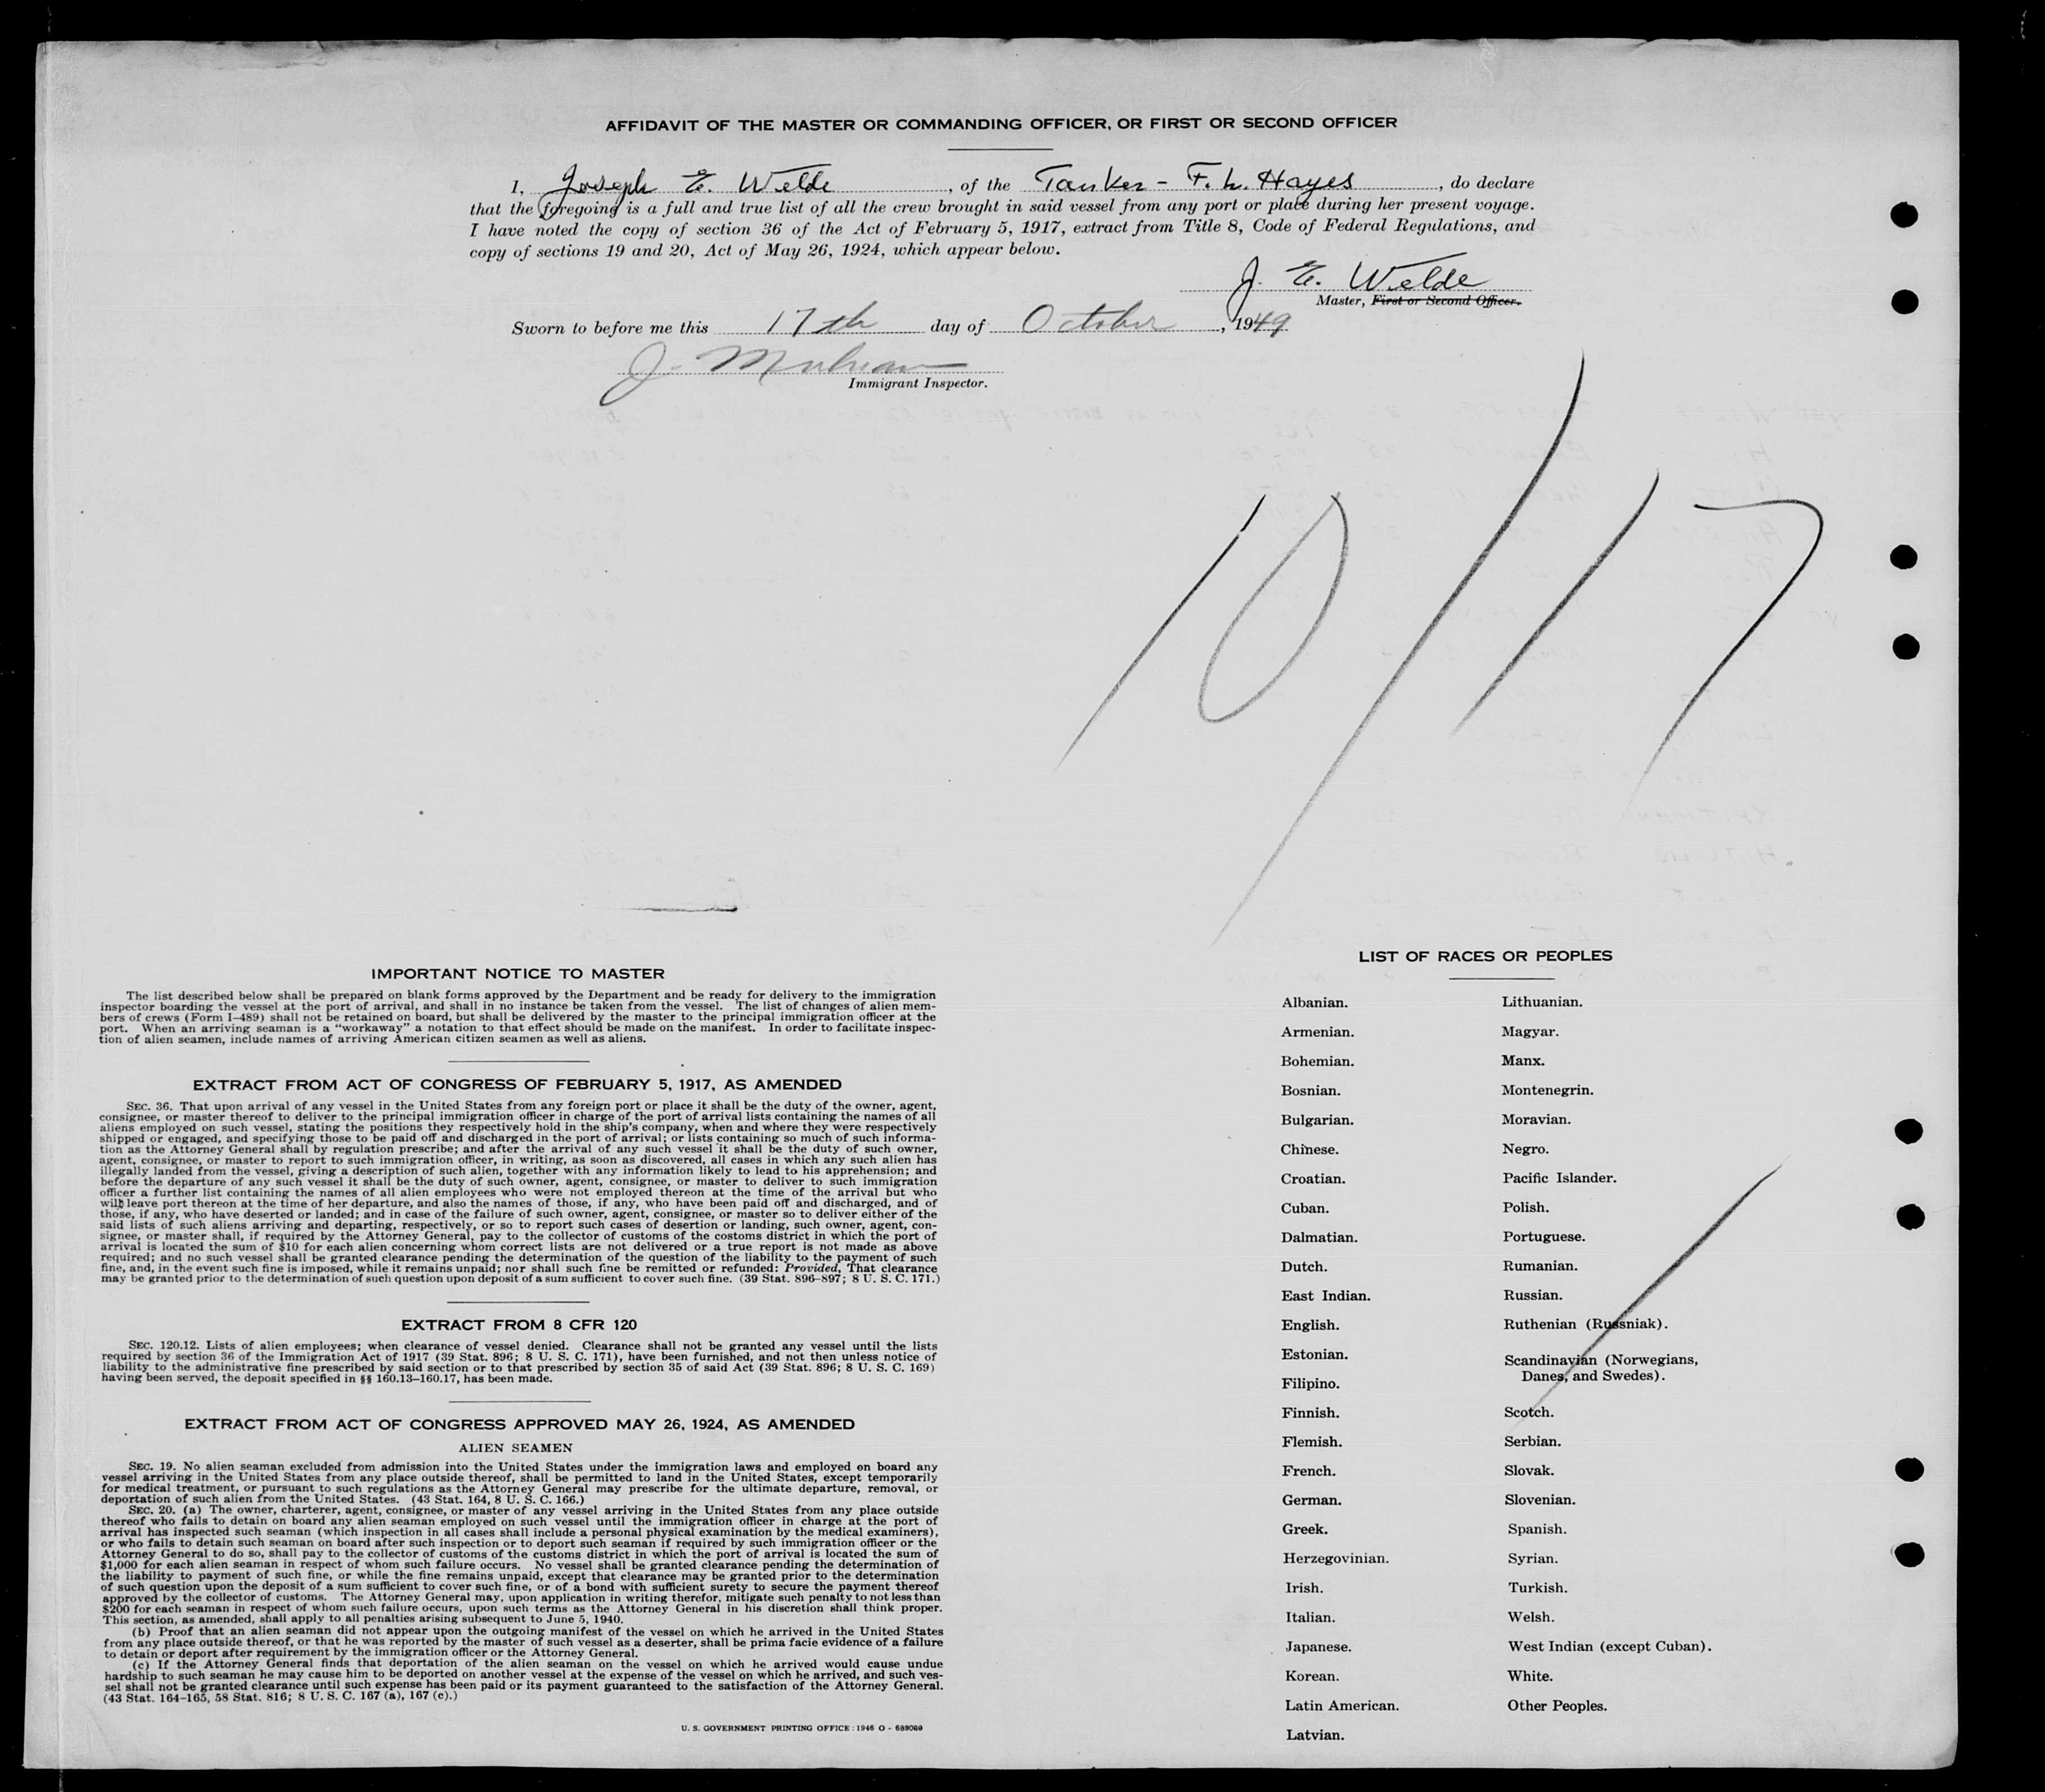 AFFIDAVIT OF THE MASTER OR COMMANDING OFFICER, OR FIRST OR SECOND OFFICER
I, Joseph E. Welde, of the Tanker - F. L. Hayes, do declare
that the foregoing is a full and true list of all the crew brought in said vessel from any port or place during her present voyage.
I have noted the copy of section 36 of the Act of February 5, 1917, extract from Title 8, Code of Federal Regulations, and
copy of sections 19 and 20, Act of May 26, 1924, which appear below.
J. E. Welde
Master, First or Second Officer.
Sworn to before me this 17th day of October, 1949
J.
Immigrant Inspector.
10/17
IMPORTANT NOTICE TO MASTER
The list described below shall be prepared on blank forms approved by the Department and be ready for delivery to the immigration
inspector boarding the vessel at the port of arrival, and shall in no instance be taken from the vessel. The list of changes of alien mem-
bers of crews (Form I-489) shall not be retained on board, but shall be delivered by the master to the principal immigration officer at the
port. When an arriving seaman is a "workaway" a notation to that effect should be made on the manifest. In order to facilitate inspec-
tion of alien seamen, include names of arriving American citizen seamen as well as aliens.
EXTRACT FROM ACT OF CONGRESS OF FEBRUARY 5, 1917, AS AMENDED
SEC. 36. That upon arrival of any vessel in the United States from any foreign port or place it shall be the duty of the owner, agent,
consignee, or master thereof to deliver to the principal immigration officer in charge of the port of arrival lists containing the names of all
aliens employed on such vessel, stating the positions they respectively hold in the ship's company, when and where they were respectively
shipped or engaged, and specifying those to be paid off and discharged in the port of arrival; or lists containing so much of such informa-
tion as the Attorney General shall by regulation prescribe; and after the arrival of any such vessel it shall be the duty of such owner,
agent, consignee, or master to report to such immigration officer, in writing, as soon as discovered, all cases in which any such alien has
illegally landed from the vessel, giving a description of such alien, together with any information likely to lead to his apprehension; and
before the departure of any such vessel it shall be the duty of such owner, agent, consignee, or master to deliver to such immigration
officer a further list containing the names of all alien employees who were not employed thereon at the time of the arrival but who
will leave port thereon at the time of her departure, and also the names of those, if any, who have been paid off and discharged, and of
those, if any, who have deserted or landed; and in case of the failure of such owner, agent, consignee, or master so to deliver either of the
said lists of such aliens arriving and departing, respectively, or so to report such cases of desertion or landing, such owner, agent, con-
signee, or master shall, if required by the Attorney General, pay to the collector of customs of the costoms district in which the port of
arrival is located the sum of $10 for each alien concerning whom correct lists are not delivered or a true report is not made as above
required; and no such vessel shall be granted clearance pending the determination of the question of the liability to the payment of such
fine, and, in the event such fine is imposed, while it remains unpaid; nor shall such fine be remitted or refunded: Provided, That clearance
may be granted prior to the determination of such question upon deposit of a sum sufficient to cover such fine. (39 Stat. 896-897; 8 U. S. C. 171.)
EXTRACT FROM 8 CFR 120
SEC. 120.12. Lists of alien employees; when clearance of vessel denied. Clearance shall not be granted any vessel until the lists
required by section 36 of the Immigration Act of 1917 (39 Stat. 896; 8 U. S. C. 171), have been furnished, and not then unless notice of
liability to the administrative fine prescribed by said section or to that prescribed by section 35 of said Act (39 Stat. 896; 8 U. S. C. 169)
having been served, the deposit specified in §§ 160.13-160.17, has been made.
EXTRACT FROM ACT OF CONGRESS APPROVED MAY 26, 1924, AS AMENDED
ALIEN SEAMEN
SEC. 19. No alien seaman excluded from admission into the United States under the immigration laws and employed on board any
vessel arriving in the United States from any place outside thereof, shall be permitted to land in the United States, except temporarily
for medical treatment, or pursuant to such regulations as the Attorney General may prescribe for the ultimate departure, removal, or
deportation of such alien from the United States. (43 Stat. 164, 8 U. S. C. 166.)
SEC. 20. (a) The owner, charterer, agent, consignee, or master of any vessel arriving in the United States from any place outside
thereof who fails to detain on board any alien seaman employed on such vessel until the immigration officer in charge at the port of
arrival has inspected such seaman (which inspection in all cases shall include a personal physical examination by the medical examiners),
or who fails to detain such seaman on board after such inspection or to deport such seaman if required by such immigration officer or the
Attorney General to do so, shall pay to the collector of customs of the customs district in which the port of arrival is located the sum of
$1,000 for each alien seaman in respect of whom such failure occurs. No vessel shall be granted clearance pending the determination of
the liability to payment of such fine, or while the fine remains unpaid, except that clearance may be granted prior to the determination
of such question upon the deposit of a sum sufficient to cover such fine, or of a bond with sufficient surety to secure the payment thereof
approved by the collector of customs. The Attorney General may, upon application in writing therefor, mitigate such penalty to not less than
$200 for each seaman in respect of whom such failure occurs, upon such terms as the Attorney General in his discretion shall think proper.
This section, as amended, shall apply to all penalties arising subsequent to June 5, 1940.
(b) Proof that an alien seaman did not appear upon the outgoing manifest of the vessel on which he arrived in the United States
from any place outside thereof, or that he was reported by the master of such vessel as a deserter, shall be prima facie evidence of a failure
to detain or deport after requirement by the immigration officer or the Attorney General.
(c) If the Attorney General finds that deportation of the alien seaman on the vessel on which he arrived would cause undue
hardship to such seaman he may cause him to be deported on another vessel at the expense of the vessel on which he arrived, and such ves-
sel shall not be granted clearance until such expense has been paid or its payment guaranteed to the satisfaction of the Attorney General.
(43 Stat. 164-165, 58 Stat. 816; 8 U. S. C. 167 (a), 167 (c).)
U. S. GOVERNMENT PRINTING OFFICE : 1946 O - 689060
LIST OF RACES OR PEOPLES
Albanian.
Armenian.
Bohemian.
Bosnian.
Bulgarian.
Chinese.
Croatian.
Cuban.
Dalmatian.
Dutch.
East Indian.
English.
Estonian.
Filipino.
Finnish.
Flemish.
French.
German.
Greek.
Herzegovinian.
Irish.
Italian.
Japanese.
Korean.
Latin American.
Latvian.
Lithuanian.
Magyar.
Manx.
Montenegrin.
Moravian.
Negro.
Pacific Islander.
Polish.
Portuguese.
Rumanian.
Russian.
Ruthenian (Russniak).
Scandinavian (Norwegians,
Danes, and Swedes).
Scotch.
Serbian.
Slovak.
Slovenian.
Spanish.
Syrian.
Turkish.
Welsh.
West Indian (except Cuban).
White.
Other Peoples.